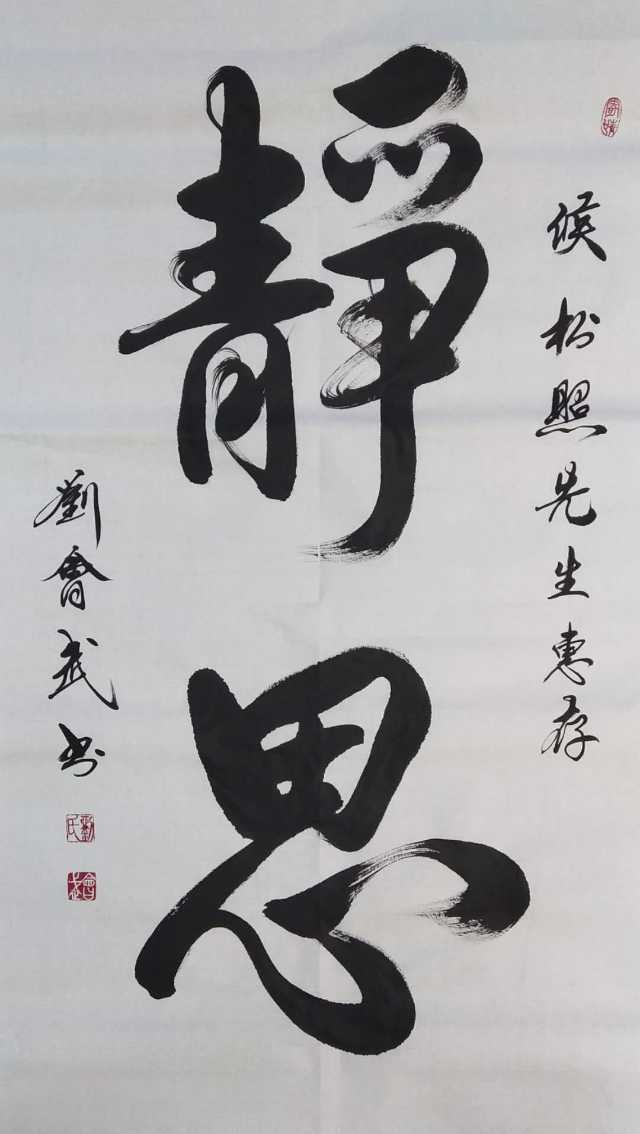 候松照先生惠存
靜思
劉會武书
劉氏
會武